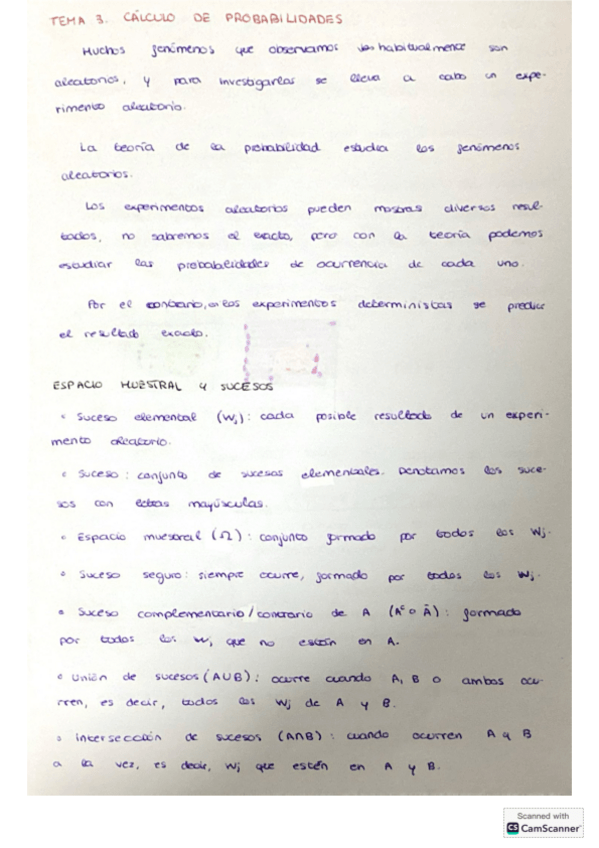 TEMA 3. CÁLCULO DE PROBABILIDADES
Muchos fenómenos que observamos habitualmente son
aleatorios, y para investigarlos se lleva a cabo un expe-
rimento aleatorio.
La teoría de la probabilidad estudia los fenómenos
aleatorios.
Los experimentos aleatorios pueden mostrar diversos resul-
tados, no sabremos el exacto, pero con la teoría podemos
estudiar las probabilidades de ocurrencia de cada uno.
Por el contrario, en los experimentos deterministas se predice
el resultado exacto.
ESPACIO MUESTRAL Y SUCESOS
• Suceso elemental (Wj): cada posible resultado de un experi-
mento aleatorio.
• Suceso: conjunto de sucesos elementales. Denotamos los suce-
sos con letras mayúsculas.
• Espacio muestral (Ω): conjunto formado por todos los Wj.
• Suceso seguro: siempre ocurre, formado por todos los Wj.
• Suceso complementario/contrario de A (Aᶜ o Ā): formado
por todos los Wj que no están en A.
• Unión de sucesos (A∪B): ocurre cuando A, B o ambos ocu-
rren, es decir, todos los Wj de A y B.
• Intersección de sucesos (A∩B): cuando ocurren A y B
a la vez, es decir, Wj que estén en A y B.
Scanned with
CS CamScanner